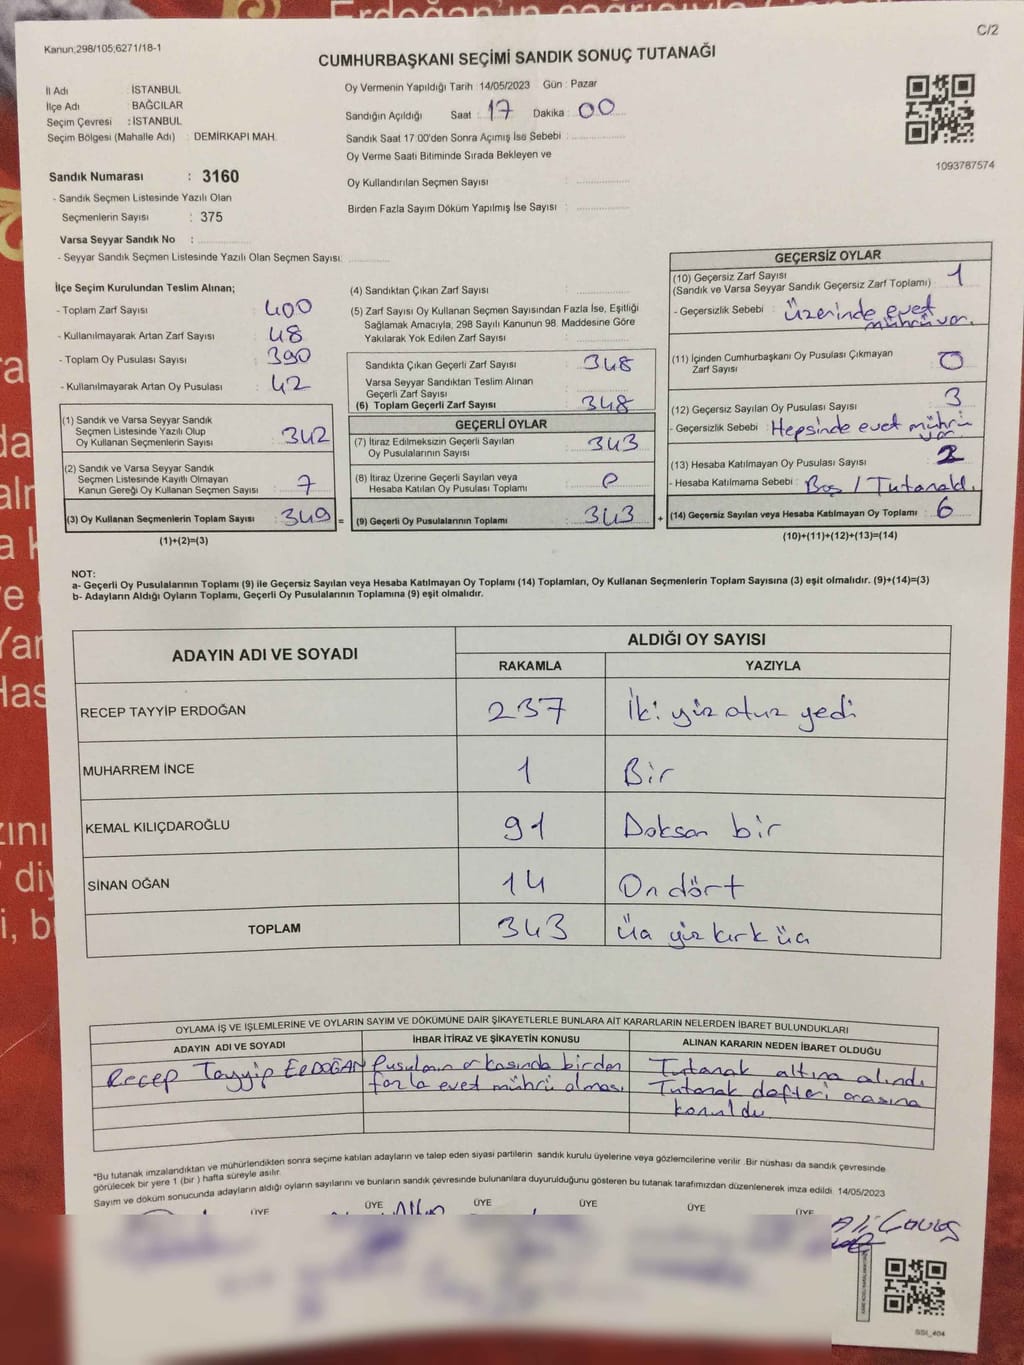 Erdoğan'ın çağrısıyla
C/2
Kanun:298/105;6271/18-1
CUMHURBAŞKANI SEÇİMİ SANDIK SONUÇ TUTANAĞI
İl Adı : İSTANBUL
İlçe Adı : BAĞCILAR
Seçim Çevresi : İSTANBUL
Seçim Bölgesi (Mahalle Adı) : DEMİRKAPI MAH.
Sandık Numarası : 3160
- Sandık Seçmen Listesinde Yazılı Olan
Seçmenlerin Sayısı : 375
Varsa Seyyar Sandık No :
- Seyyar Sandık Seçmen Listesinde Yazılı Olan Seçmen Sayısı:
Oy Vermenin Yapıldığı Tarih : 14/05/2023 Gün : Pazar
Sandığın Açıldığı Saat : 17 Dakika : 00
Sandık Saat 17:00'den Sonra Açımış İse Sebebi :
Oy Verme Saati Bitiminde Sırada Bekleyen ve
Oy Kullandırılan Seçmen Sayısı :
Birden Fazla Sayım Döküm Yapılmış İse Sayısı :
1093787574
İlçe Seçim Kurulundan Teslim Alınan;
- Toplam Zarf Sayısı : 400
- Kullanılmayarak Artan Zarf Sayısı : 48
- Toplam Oy Pusulası Sayısı : 390
- Kullanılmayarak Artan Oy Pusulası : 42
(1) Sandık ve Varsa Seyyar Sandık
Seçmen Listesinde Yazılı Olup
Oy Kullanan Seçmenlerin Sayısı : 342
(2) Sandık ve Varsa Seyyar Sandık
Seçmen Listesinde Kayıtlı Olmayan
Kanun Gereği Oy Kullanan Seçmen Sayısı : 7
(3) Oy Kullanan Seçmenlerin Toplam Sayısı : 349 =
(1)+(2)=(3)
(4) Sandıktan Çıkan Zarf Sayısı :
(5) Zarf Sayısı Oy Kullanan Seçmen Sayısından Fazla İse, Eşitliği
Sağlamak Amacıyla, 298 Sayılı Kanunun 98. Maddesine Göre
Yakılarak Yok Edilen Zarf Sayısı :
Sandıkta Çıkan Geçerli Zarf Sayısı : 348
Varsa Seyyar Sandıktan Teslim Alınan
Geçerli Zarf Sayısı :
(6) Toplam Geçerli Zarf Sayısı : 348
GEÇERLİ OYLAR
(7) İtiraz Edilmeksizin Geçerli Sayılan
Oy Pusulalarının Sayısı : 343
(8) İtiraz Üzerine Geçerli Sayılan veya
Hesaba Katılan Oy Pusulası Toplamı : 0
(9) Geçerli Oy Pusulalarının Toplamı : 343 +
GEÇERSİZ OYLAR
(10) Geçersiz Zarf Sayısı : 1
(Sandık ve Varsa Seyyar Sandık Geçersiz Zarf Toplamı)
- Geçersizlik Sebebi : Üzerinde evet
mührü var.
(11) İçinden Cumhurbaşkanı Oy Pusulası Çıkmayan
Zarf Sayısı : 0
(12) Geçersiz Sayılan Oy Pusulası Sayısı : 3
- Geçersizlik Sebebi : Hepsinde evet mührü
var
(13) Hesaba Katılmayan Oy Pusulası Sayısı : 2
- Hesaba Katılmama Sebebi : Boş / Tutanakl.
(14) Geçersiz Sayılan veya Hesaba Katılmayan Oy Toplamı : 6
(10)+(11)+(12)+(13)=(14)
NOT:
a- Geçerli Oy Pusulalarının Toplamı (9) ile Geçersiz Sayılan veya Hesaba Katılmayan Oy Toplamı (14) Toplamları, Oy Kullanan Seçmenlerin Toplam Sayısına (3) eşit olmalıdır. (9)+(14)=(3)
b- Adayların Aldığı Oyların Toplamı, Geçerli Oy Pusulalarının Toplamına (9) eşit olmalıdır.
ADAYIN ADI VE SOYADI
ALDIĞI OY SAYISI
RAKAMLA YAZIYLA
RECEP TAYYİP ERDOĞAN 237 İki yüz otuz yedi
MUHARREM İNCE 1 Bir
KEMAL KILIÇDAROĞLU 91 Doksan bir
SİNAN OĞAN 14 On dört
TOPLAM 343 Üç yüz kırk üç
OYLAMA İŞ VE İŞLEMLERİNE VE OYLARIN SAYIM VE DÖKÜMÜNE DAİR ŞİKAYETLERLE BUNLARA AİT KARARLARIN NELERDEN İBARET BULUNDUKLARI
ADAYIN ADI VE SOYADI İHBAR İTİRAZ VE ŞİKAYETİN KONUSU ALINAN KARARIN NEDEN İBARET OLDUĞU
Recep Tayyip ERDOĞAN Pusulanın arkasında birden Tutanak altına alındı
fazla evet mührü olması Tutanak defteri arasına
konuldu.
*Bu tutanak imzalandıktan ve mühürlendikten sonra seçime katılan adayların ve talep eden siyasi partilerin sandık kurulu üyelerine veya gözlemcilerine verilir .Bir nüshası da sandık çevresinde
görülecek bir yere 1 (bir ) hafta süreyle asılır.
Sayım ve döküm sonucunda adayların aldığı oyların sayılarını ve bunların sandık çevresinde bulunanlara duyurulduğunu gösteren bu tutanak tarafımızdan düzenlenerek imza edildi. 14/05/2023
ÜYE ÜYE ÜYE ÜYE ÜYE ÜYE
SSI_404